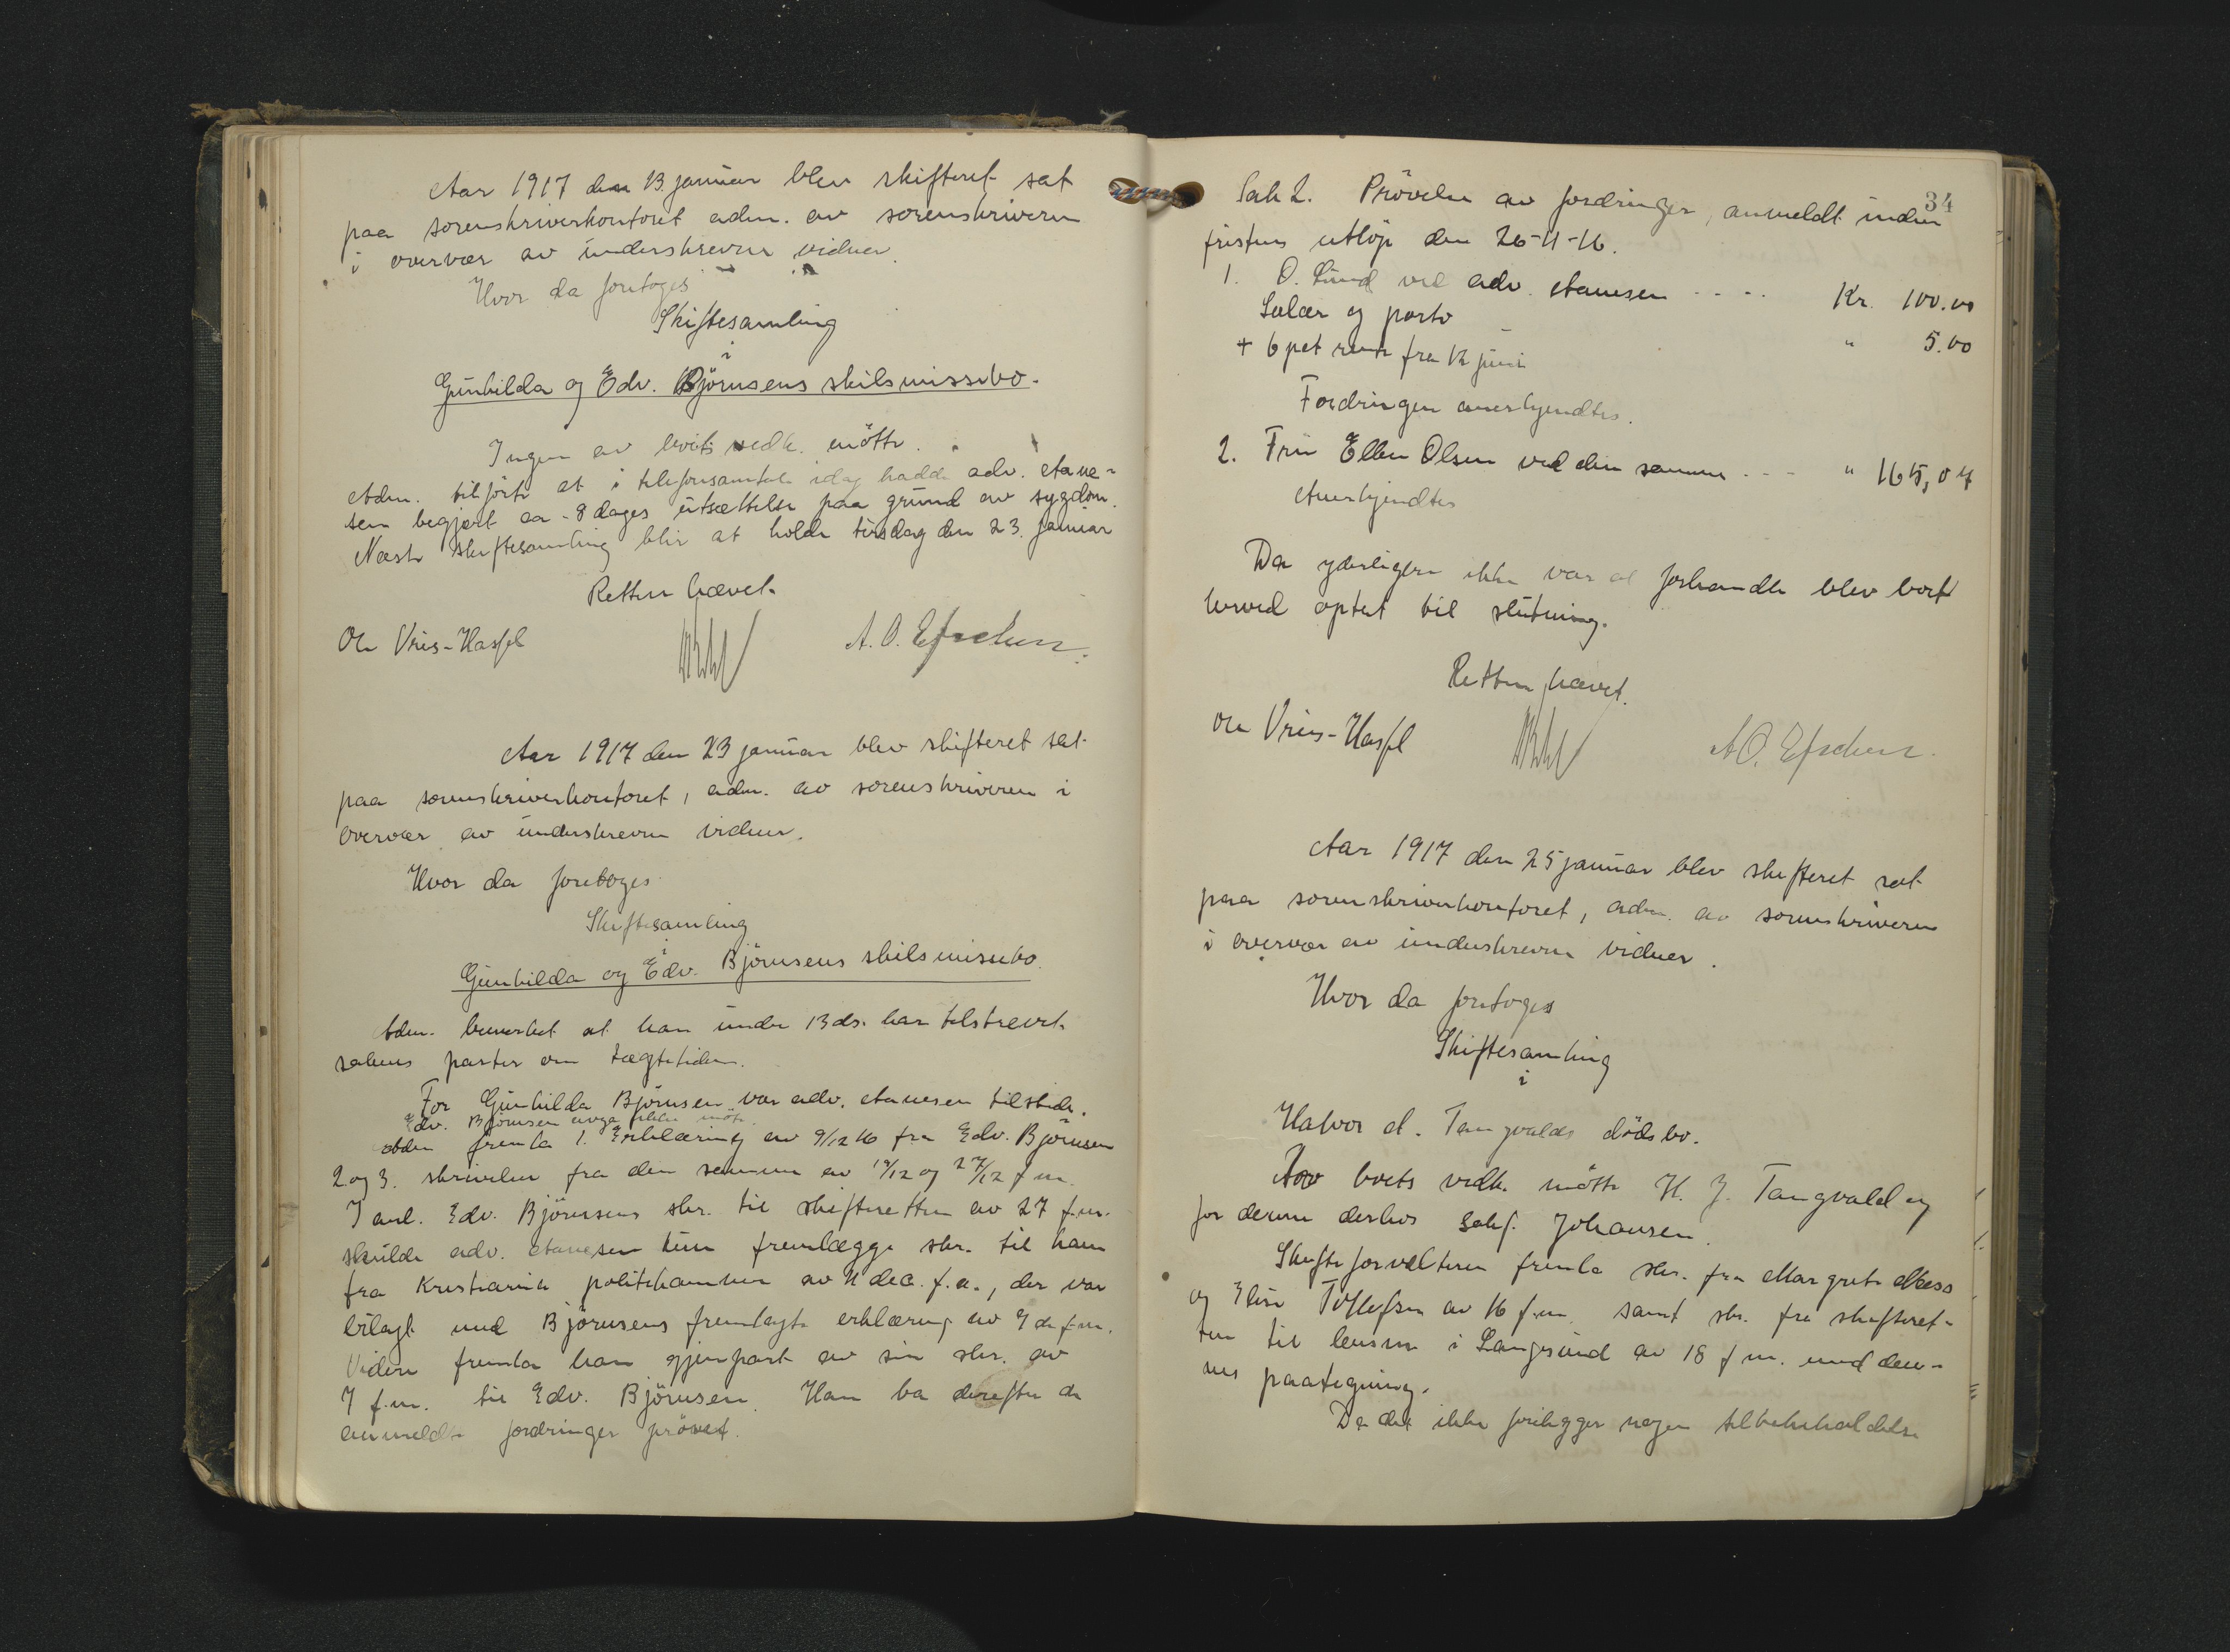 Aar 1917 den 13. januar blev skifteret sat
paa sorenskriverkontoret adm. av sorenskriveren
i overvær av underskrevne vidner.
Hvor da foretoges
Skiftesamling
i
Gunhilda og Edv. Björnsens skilsmissebo.
Ingen av boets vedk. mötte.
Adm. tilförte at i telefonsamtale idag hadde adv. Aane-
sen begjært ca. 8 dages utsættelse paa grund av sygdom.
Næste skiftesamling blir at holde tirsdag den 23. januar
Retten hævet.
Ole Vriis-Hassel
A. O. Efschen.
Aar 1917 den 23 januar blev skifteret sat
paa sorenskriverkontoret, adm. av sorenskriveren i
overvær av underskrevne vidner.
Hvor da foretoges
Skiftesamling
i
Gunhilda og Edv. Björnsens skilsmissebo.
Adm. bemerket at han under 13 ds. har tilskrevet
sakens parter om tægtetiden.
For Gunhilda Björnsen var adv. Aanesen tilstede.
Edv. Björnsen unga ikke möte.
Adm fremla 1. Erklæring av 9/12 16 fra Edv. Björnsen
2 og 3. skrivelser fra den samme av 19/12 og 27/12 f.m.
I anl. Edv. Björnsens skr. til skifteretten av 27 f.m.
skulde adv. Aanesen kun fremlægge skr. til ham
fra Kristiania politikammer av 11 dec. f.a., der var
bilagt med Björnsens fremlagte erklæring av 9 de f.m.
Videre fremla han gjenpart av sin skr. av
7 f.m. til Edv. Björnsen. Han ba derefter de
anmeldte fordringer prövet.
34
Sak 2. Prövelse av fordringer, anmeldt inden
fristens utlöp den 26-11-16.
1. O. Lund ved adv. Aanesen - - - - Kr. 100.00
Salær og porto " 5.00
+ 6 pct rente fra 12 juni
Fordringen anerkjendtes.
2. Fru Ellen Olsen ved den samme - - - " 165,04
Anerkjendtes
Da yderligere ikke var at forhandle blev boet
herved optat til slutning.
Retten hævet.
Ole Vriis-Hassel
A.O. Efschen.
Aar 1917 den 25 januar blev skifteret sat
paa sorenskriverkontoret, adm. av sorenskriveren
i overvær av underskrevne vidner.
Hvor da foretoges
Skiftesamling
i
Halvor A. Tangvalds dödsbo.
Av boets vedk. mötte H. J. Tangvald og
for denne derhos sakf. Johansen.
Skifteforvalteren fremla skr. fra Margrete Mess
og Elise Tollefsen av 16 f.m. samt skr. fra skifteret-
ten til lensm. i Langesund av 18 f.m. med den-
nes paategning.
Da det ikke foreligger nogen tilbakeholdelse